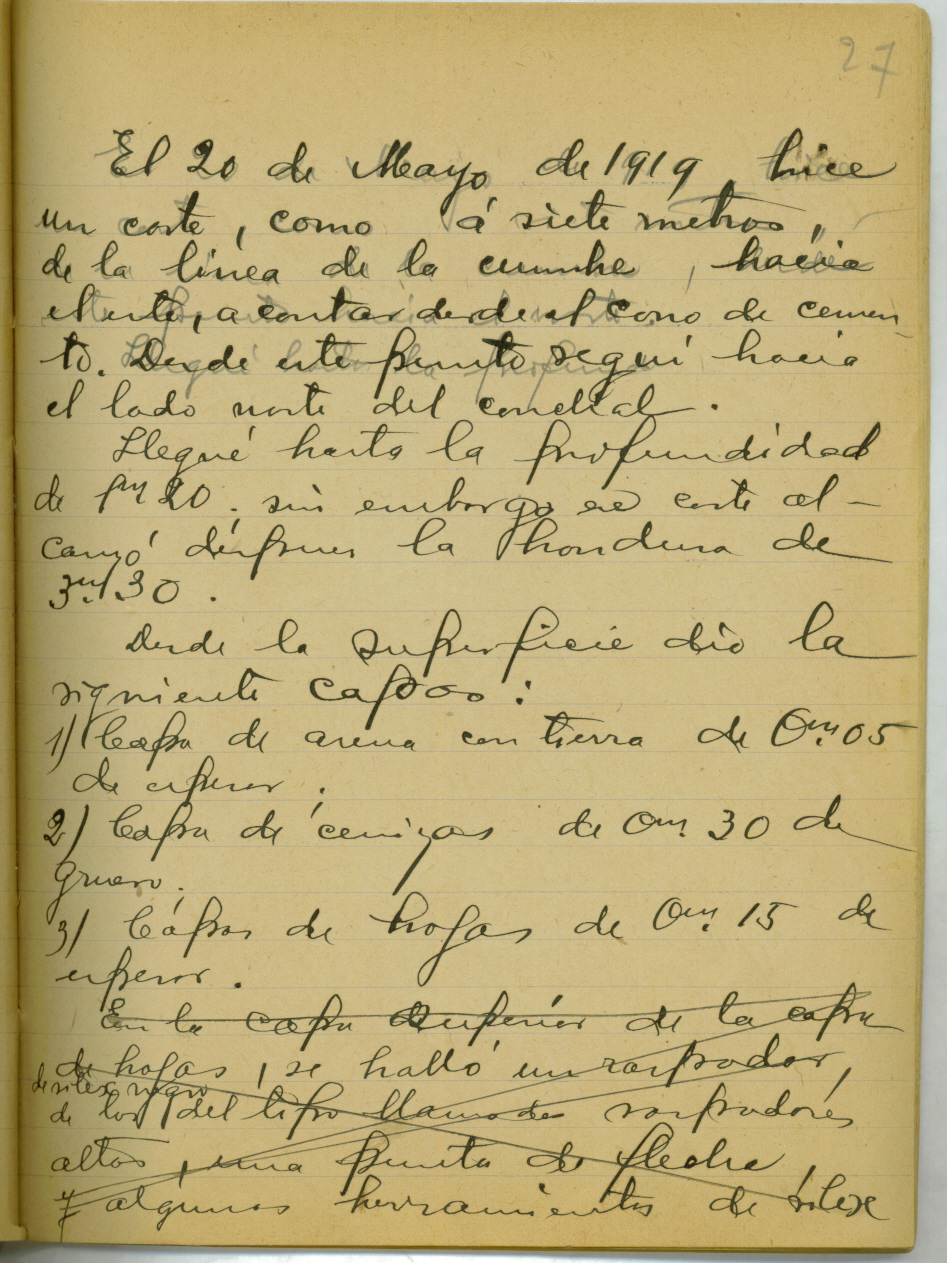 27
El 20 de Mayo de 1919, hice
un corte, como á siete metros,
de la línea de la cumbre, hacia
el este, a contar desde el cono de cemen-
to. Desde este punto seguí hacia
el lado norte del conchal.
Llegué hasta la profundidad
de 1m 20. sin embargo ese corte al-
canzó después la hondura de
3m. 30.
Desde la superficie dio la
siguiente capas:
1) Capa de arena con tierra de 0m. 05
de espesor.
2) Capa de cenizas de 0m. 30 de
grueso.
3) Cápas de hojas de 0m. 15 de
espesor.
En la capa superior de la capa
de hojas, se halló un raspador,
de silex negro
de los del tipo llamados raspadores
altos, una punta de flecha,
y algunas herramientas de silex